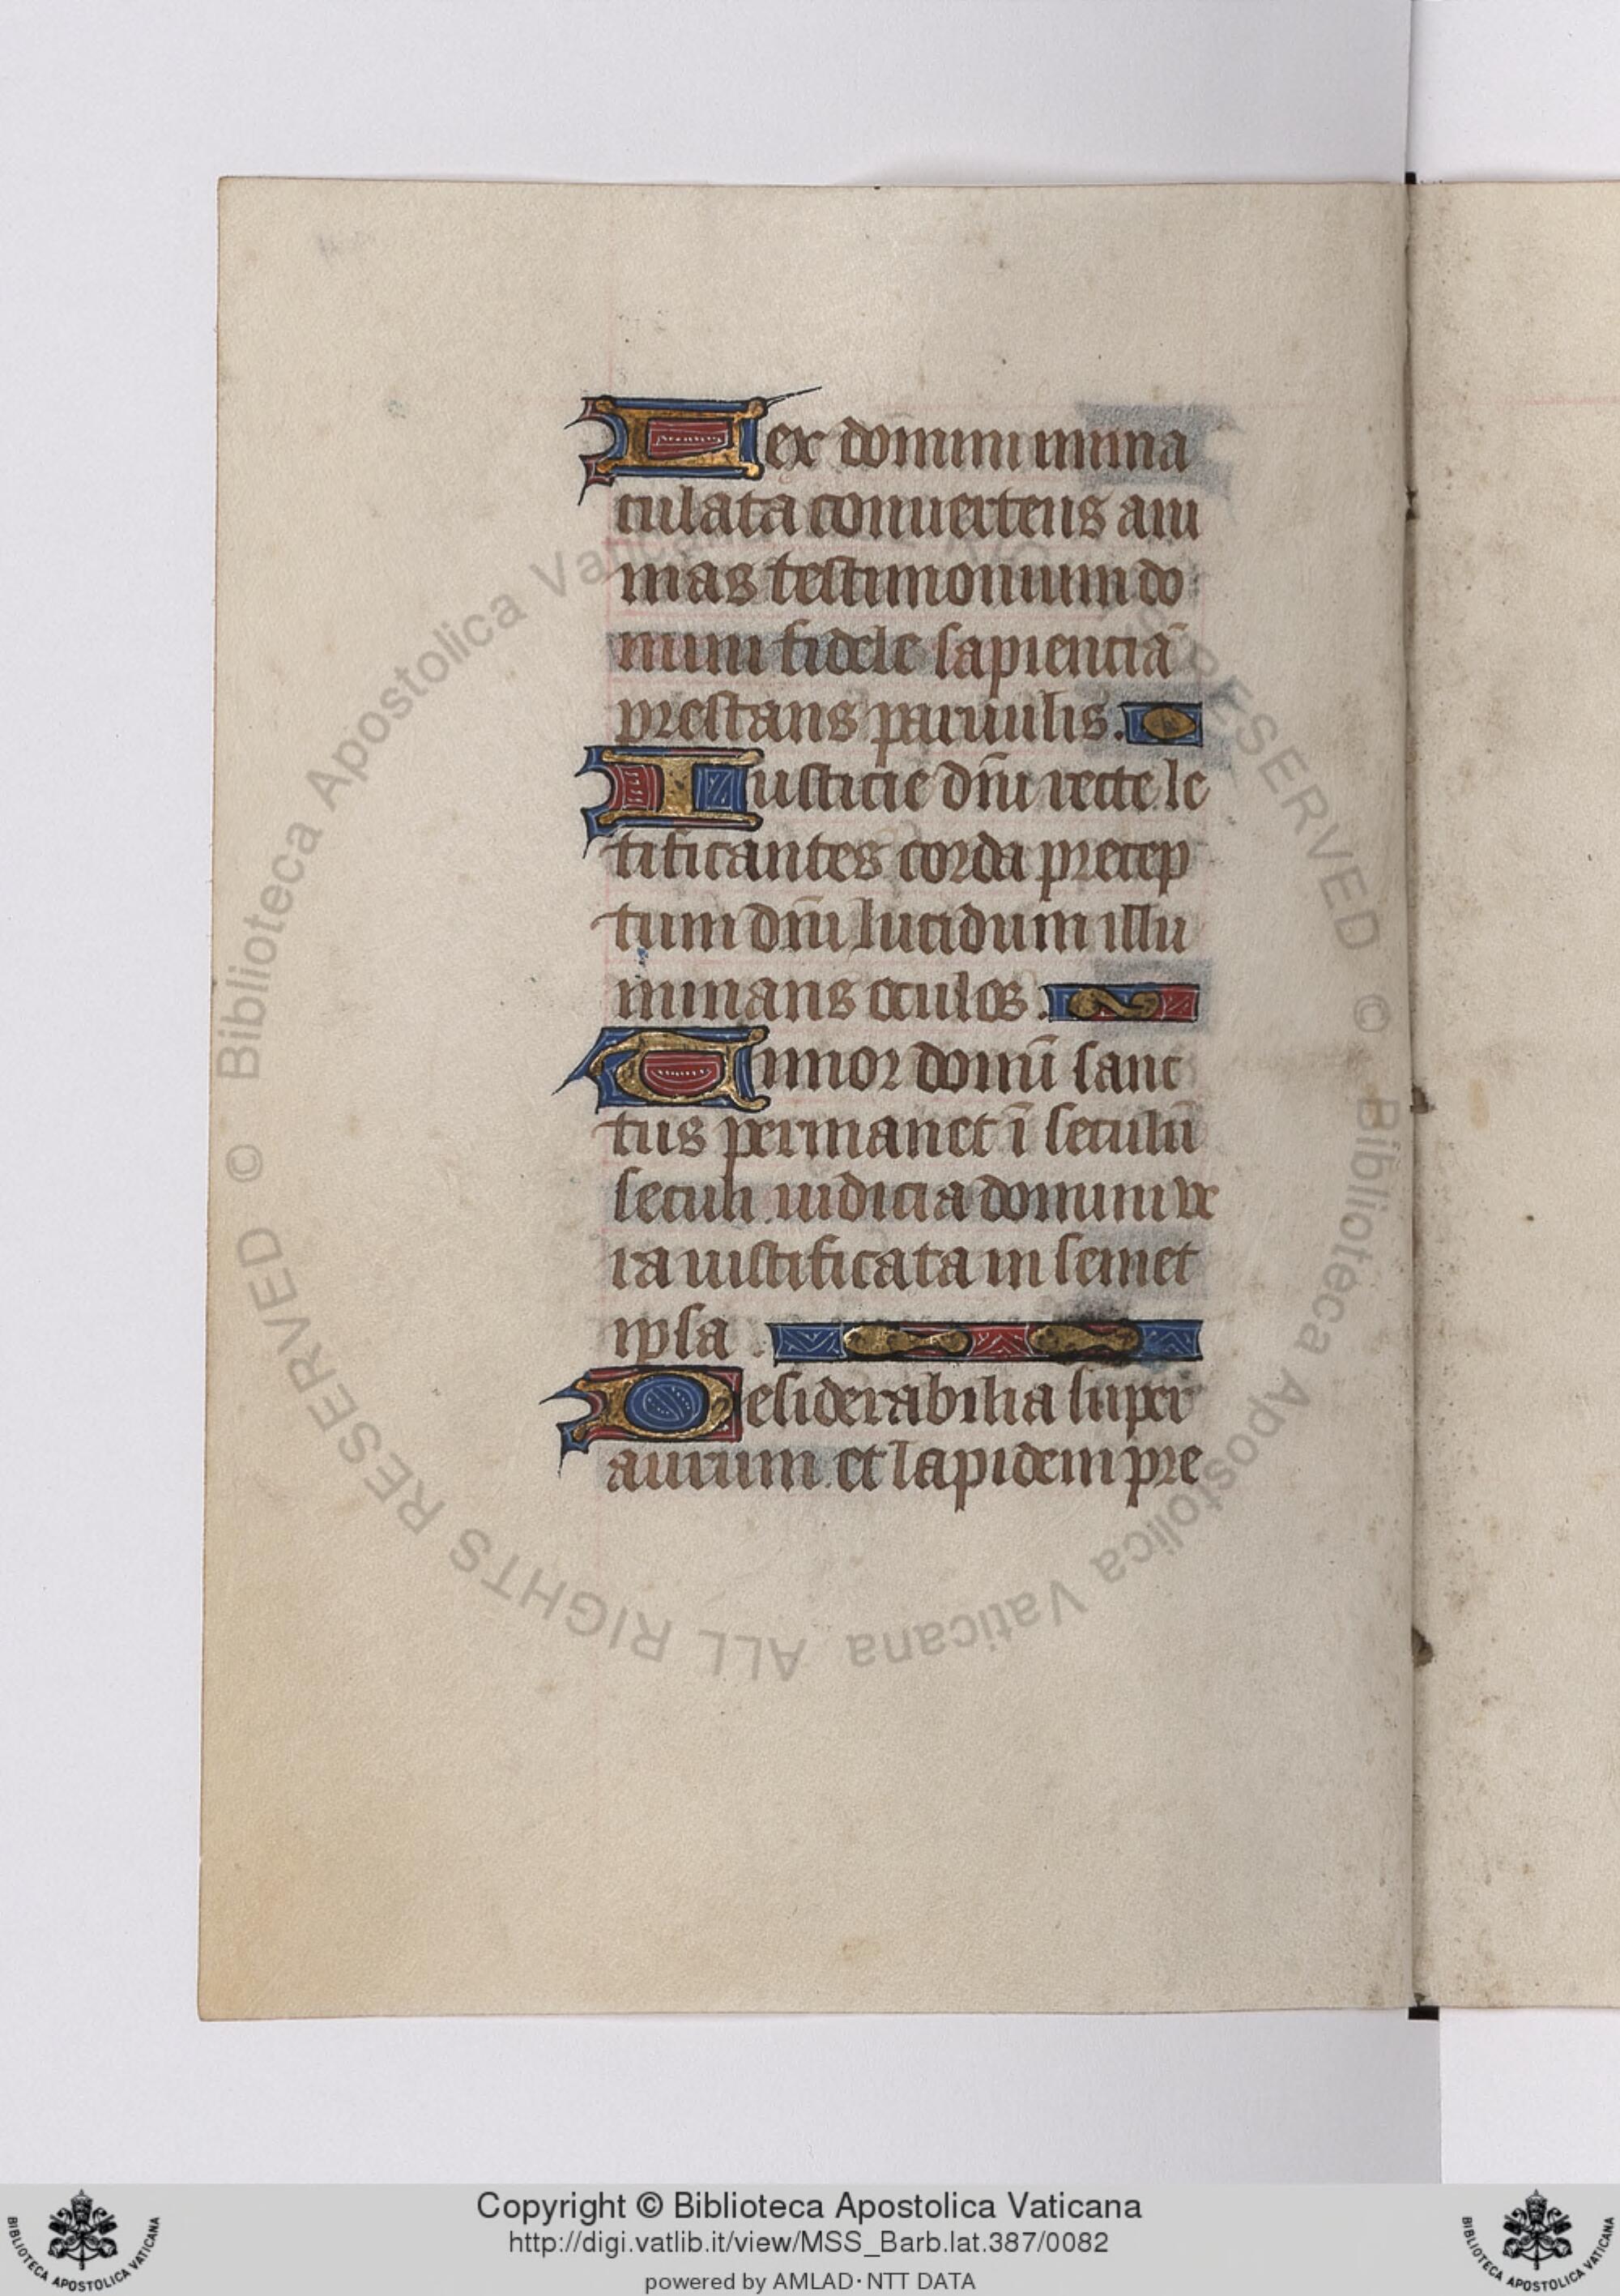 Lex domini inma
culata conuertens ani
mas testimonium do
mini fidele sapienciā
prestans paruulis.
Iusticie dn̄i recte le
tificantes corda precep
tum dn̄i lucidum illu
minans oculos.
Timor domī sanc
tus permanet ī seculū
seculi iudicia domini ve
ra iustificata in semet
ipsa.
Desiderabilia super
aurum et lapidem pre
© Biblioteca Apostolica Vaticana ALL RIGHTS RESERVED
© Biblioteca Apostolica Vaticana ALL RIGHTS RESERVED
Copyright © Biblioteca Apostolica Vaticana
http://digi.vatlib.it/view/MSS_Barb.lat.387/0082
powered by AMLAD・NTT DATA
BIBLIOTECA APOSTOLICA VATICANA
BIBLIOTECA APOSTOLICA VATICANA